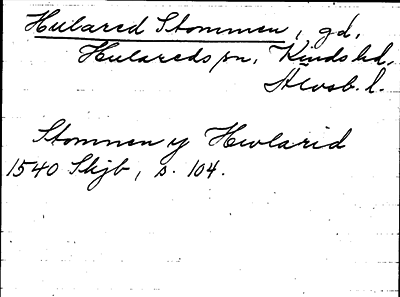 Hulared Stommen, gd,
Hulareds sn, Kinds hd,
Älvsb. l.
Stommen y Hwlarid
1540 Skjb, s. 104.